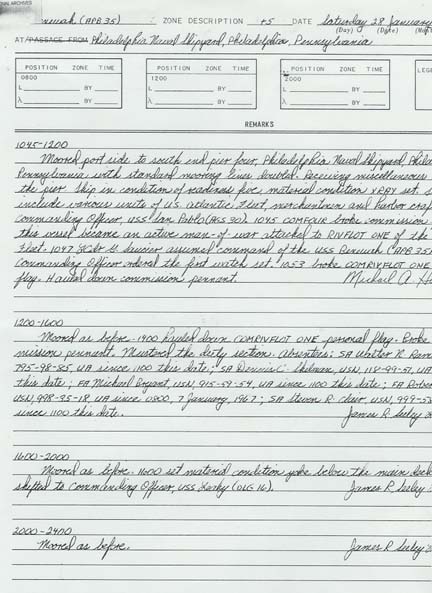 ARCHIVES
(APB 35) ZONE DESCRIPTION +5 DATE Saturday 28 January
(Day) (Date)
AT/PASSAGE FROM Philadelphia Naval Shipyard, Philadelphia, Pennsylvania
POSITION ZONE TIME POSITION ZONE TIME POSITION ZONE TIME
0800 1200 2000
L BY L BY L BY
λ BY λ BY λ BY
REMARKS
1045-1200
Moored port side to south end pier four, Philadelphia Naval Shipyard,
Pennsylvania with standard mooring lines doubled. Receiving miscellaneous
the pier. Ship in condition of readiness five, material condition XRAY set.
include various units of US Atlantic Fleet, merchantmen and harbor craft
Commanding Officer, USS San Pablo (AGS 30). 1045 broke commission
this vessel became an active man-of-war attached to RIVFLOT ONE of the
Fleet. 1047 assumed command of the USS Benewah (APB 35)
Commanding Officer ordered the first watch set. 1053 broke COMRIVFLOT ONE
flag. Hauled down commission pennant. Michael A.
1200-1600
Moored as before. 1400 hauled down COMRIVFLOT ONE personal flag. Broke
mission pennant. Mustered the duty section. Absentees: SA Walter N.
795-98-85, UA since 1100 this date; SA Dennis C. USN, 118-99-57, UA
this date; FA Michael Bryant, USN, 915-59-54, UA since 1100 this date; FA
USN, 998-35-18, UA since 0800, 7 January, 1967; SA Steven R. USN,
since 1100 this date. James R Seeley
1600-2000
Moored as before. 1600 set material condition yoke below the main deck
shifted to Commanding Officer, USS Leahy (DLG 16). James R Seeley
2000-2400
Moored as before. James R Seeley